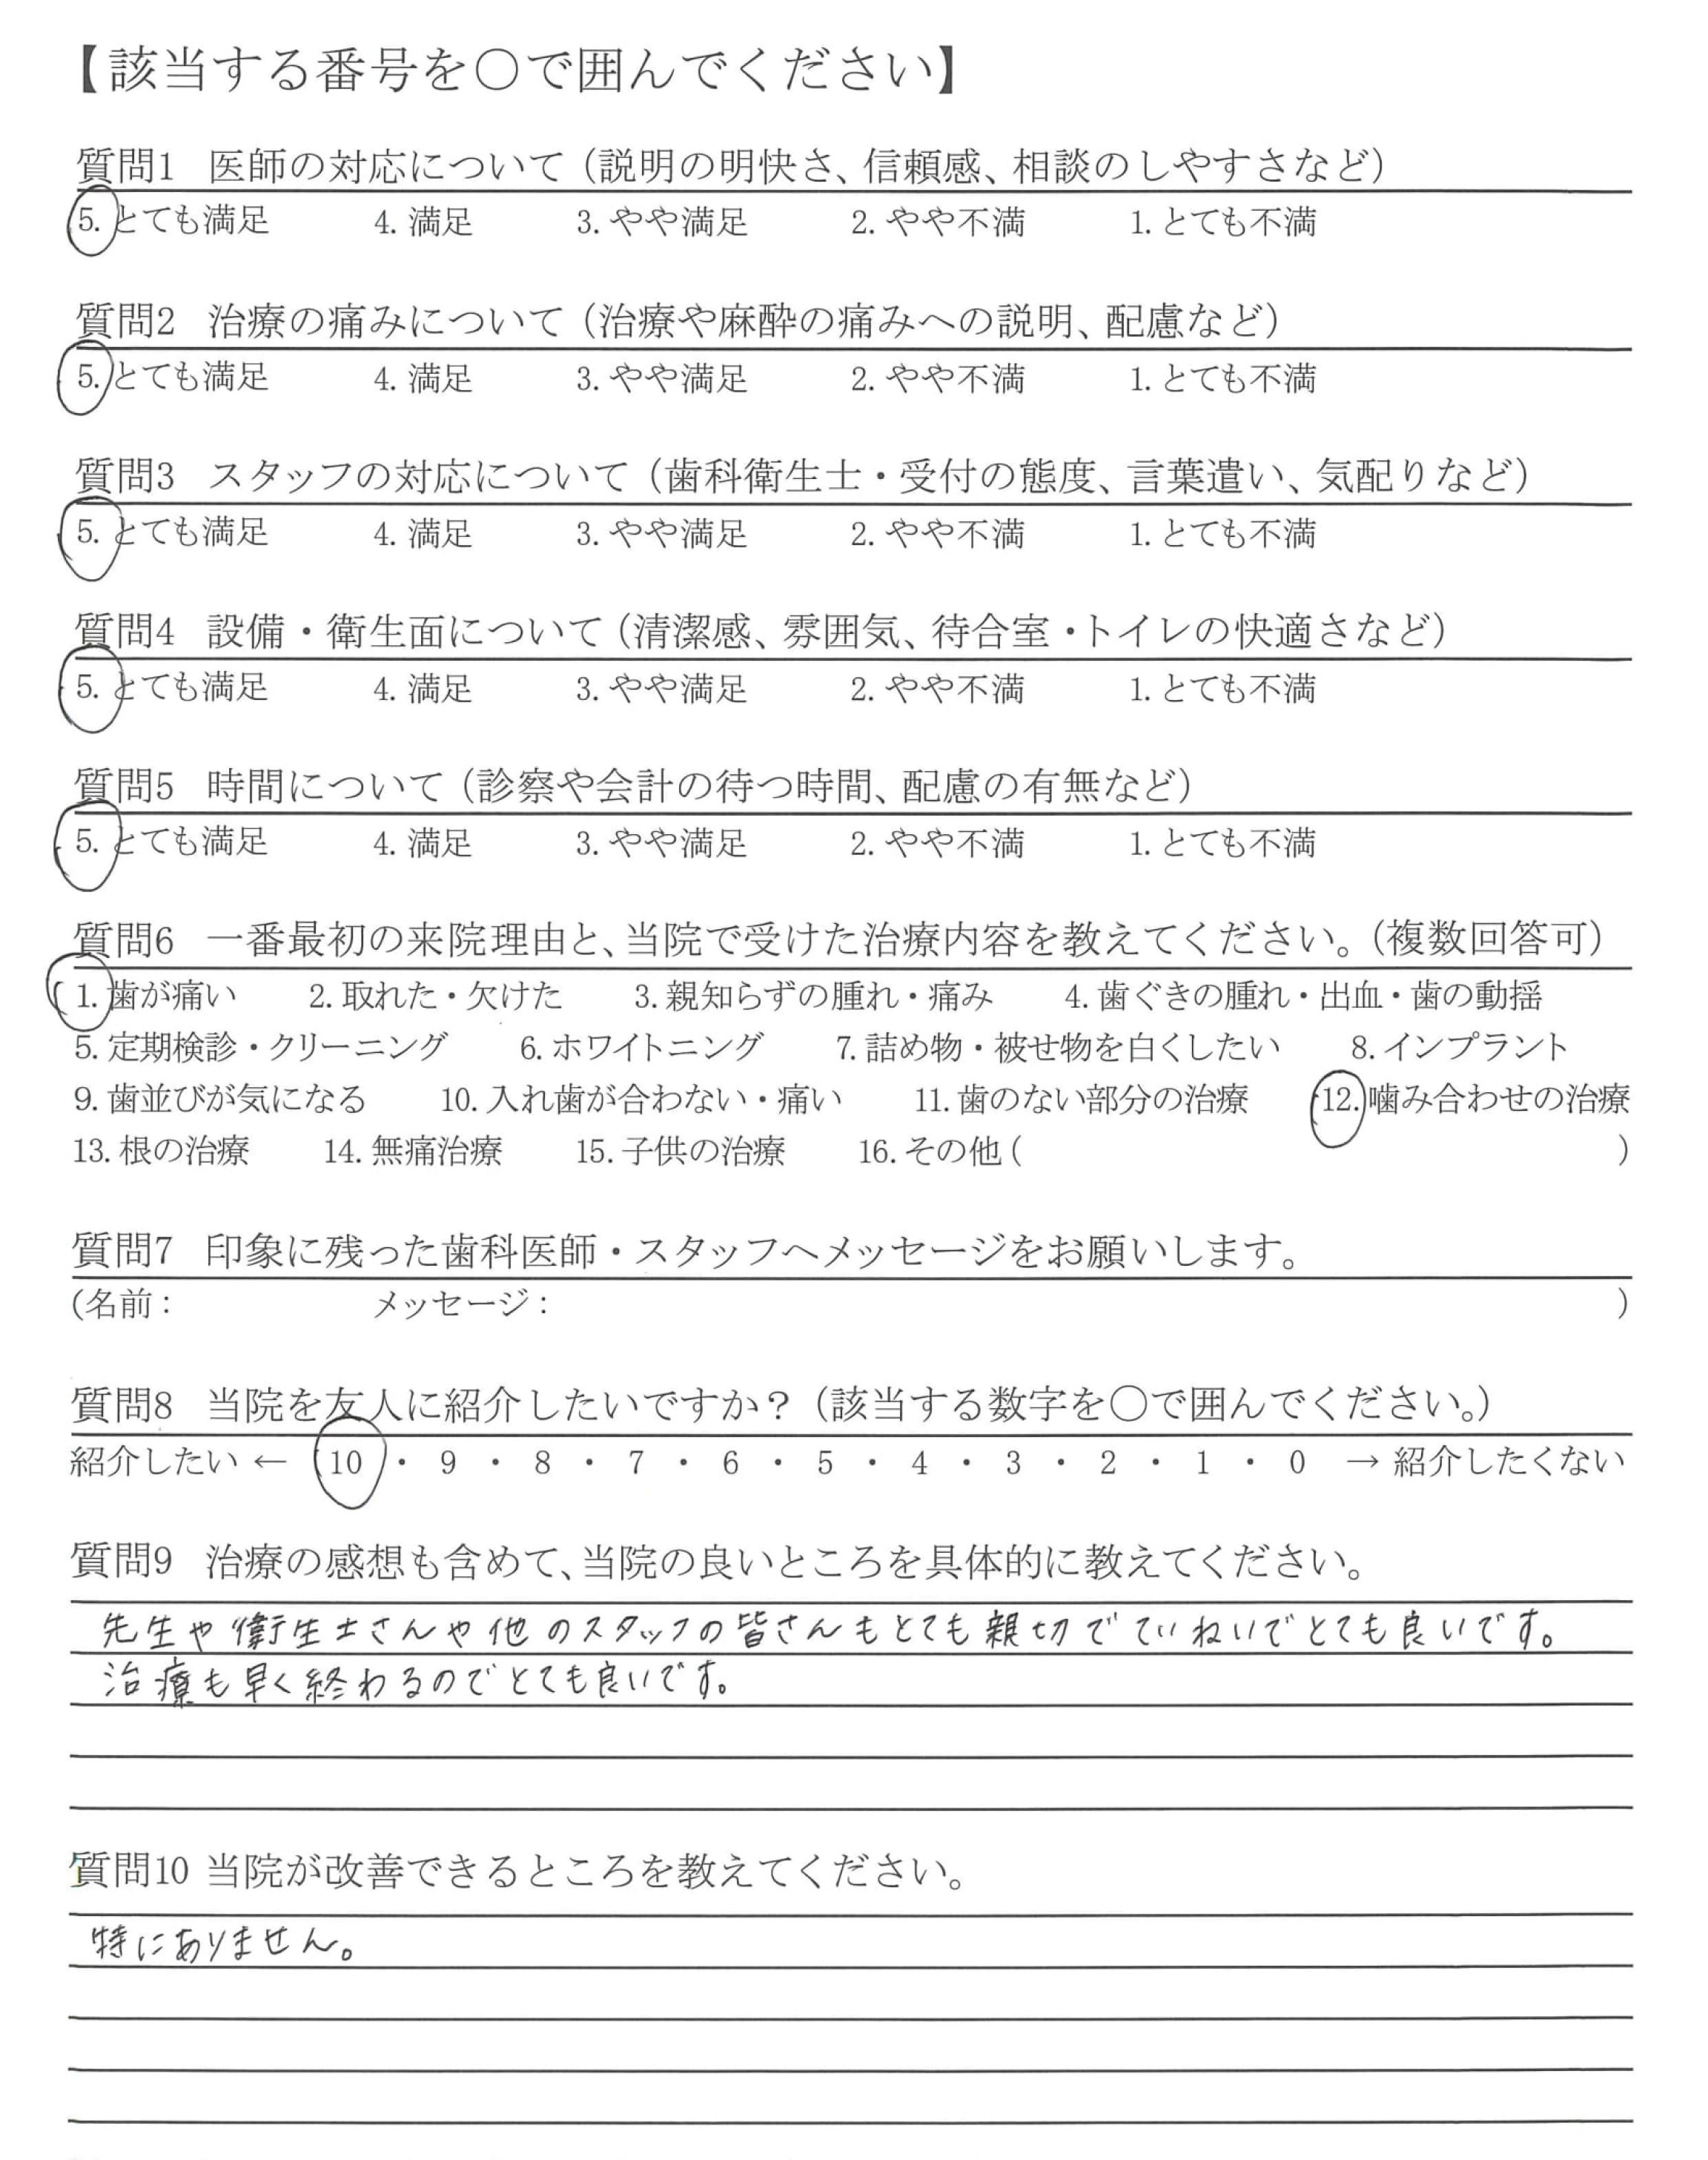 【該当する番号を〇で囲んでください】
質問1 医師の対応について（説明の明快さ、信頼感、相談のしやすさなど）
5. とても満足 4. 満足 3. やや満足 2. やや不満 1. とても不満
質問2 治療の痛みについて（治療や麻酔の痛みへの説明、配慮など）
5. とても満足 4. 満足 3. やや満足 2. やや不満 1. とても不満
質問3 スタッフの対応について（歯科衛生士・受付の態度、言葉遣い、気配りなど）
5. とても満足 4. 満足 3. やや満足 2. やや不満 1. とても不満
質問4 設備・衛生面について（清潔感、雰囲気、待合室・トイレの快適さなど）
5. とても満足 4. 満足 3. やや満足 2. やや不満 1. とても不満
質問5 時間について（診察や会計の待つ時間、配慮の有無など）
5. とても満足 4. 満足 3. やや満足 2. やや不満 1. とても不満
質問6 一番最初の来院理由と、当院で受けた治療内容を教えてください。（複数回答可）
1. 歯が痛い 2. 取れた・欠けた 3. 親知らずの腫れ・痛み 4. 歯ぐきの腫れ・出血・歯の動揺
5. 定期検診・クリーニング 6. ホワイトニング 7. 詰め物・被せ物を白くしたい 8. インプラント
9. 歯並びが気になる 10. 入れ歯が合わない・痛い 11. 歯のない部分の治療 12. 噛み合わせの治療
13. 根の治療 14. 無痛治療 15. 子供の治療 16. その他 ( )
質問7 印象に残った歯科医師・スタッフへメッセージをお願いします。
(名前： メッセージ： )
質問8 当院を友人に紹介したいですか？（該当する数字を〇で囲んでください。）
紹介したい ← 10 ・ 9 ・ 8 ・ 7 ・ 6 ・ 5 ・ 4 ・ 3 ・ 2 ・ 1 ・ 0 → 紹介したくない
質問9 治療の感想も含めて、当院の良いところを具体的に教えてください。
先生や衛生士さんや他のスタッフの皆さんもとても親切でていねいでとても良いです。
治療も早く終わるのでとても良いです。
質問10 当院が改善できるところを教えてください。
特にありません。